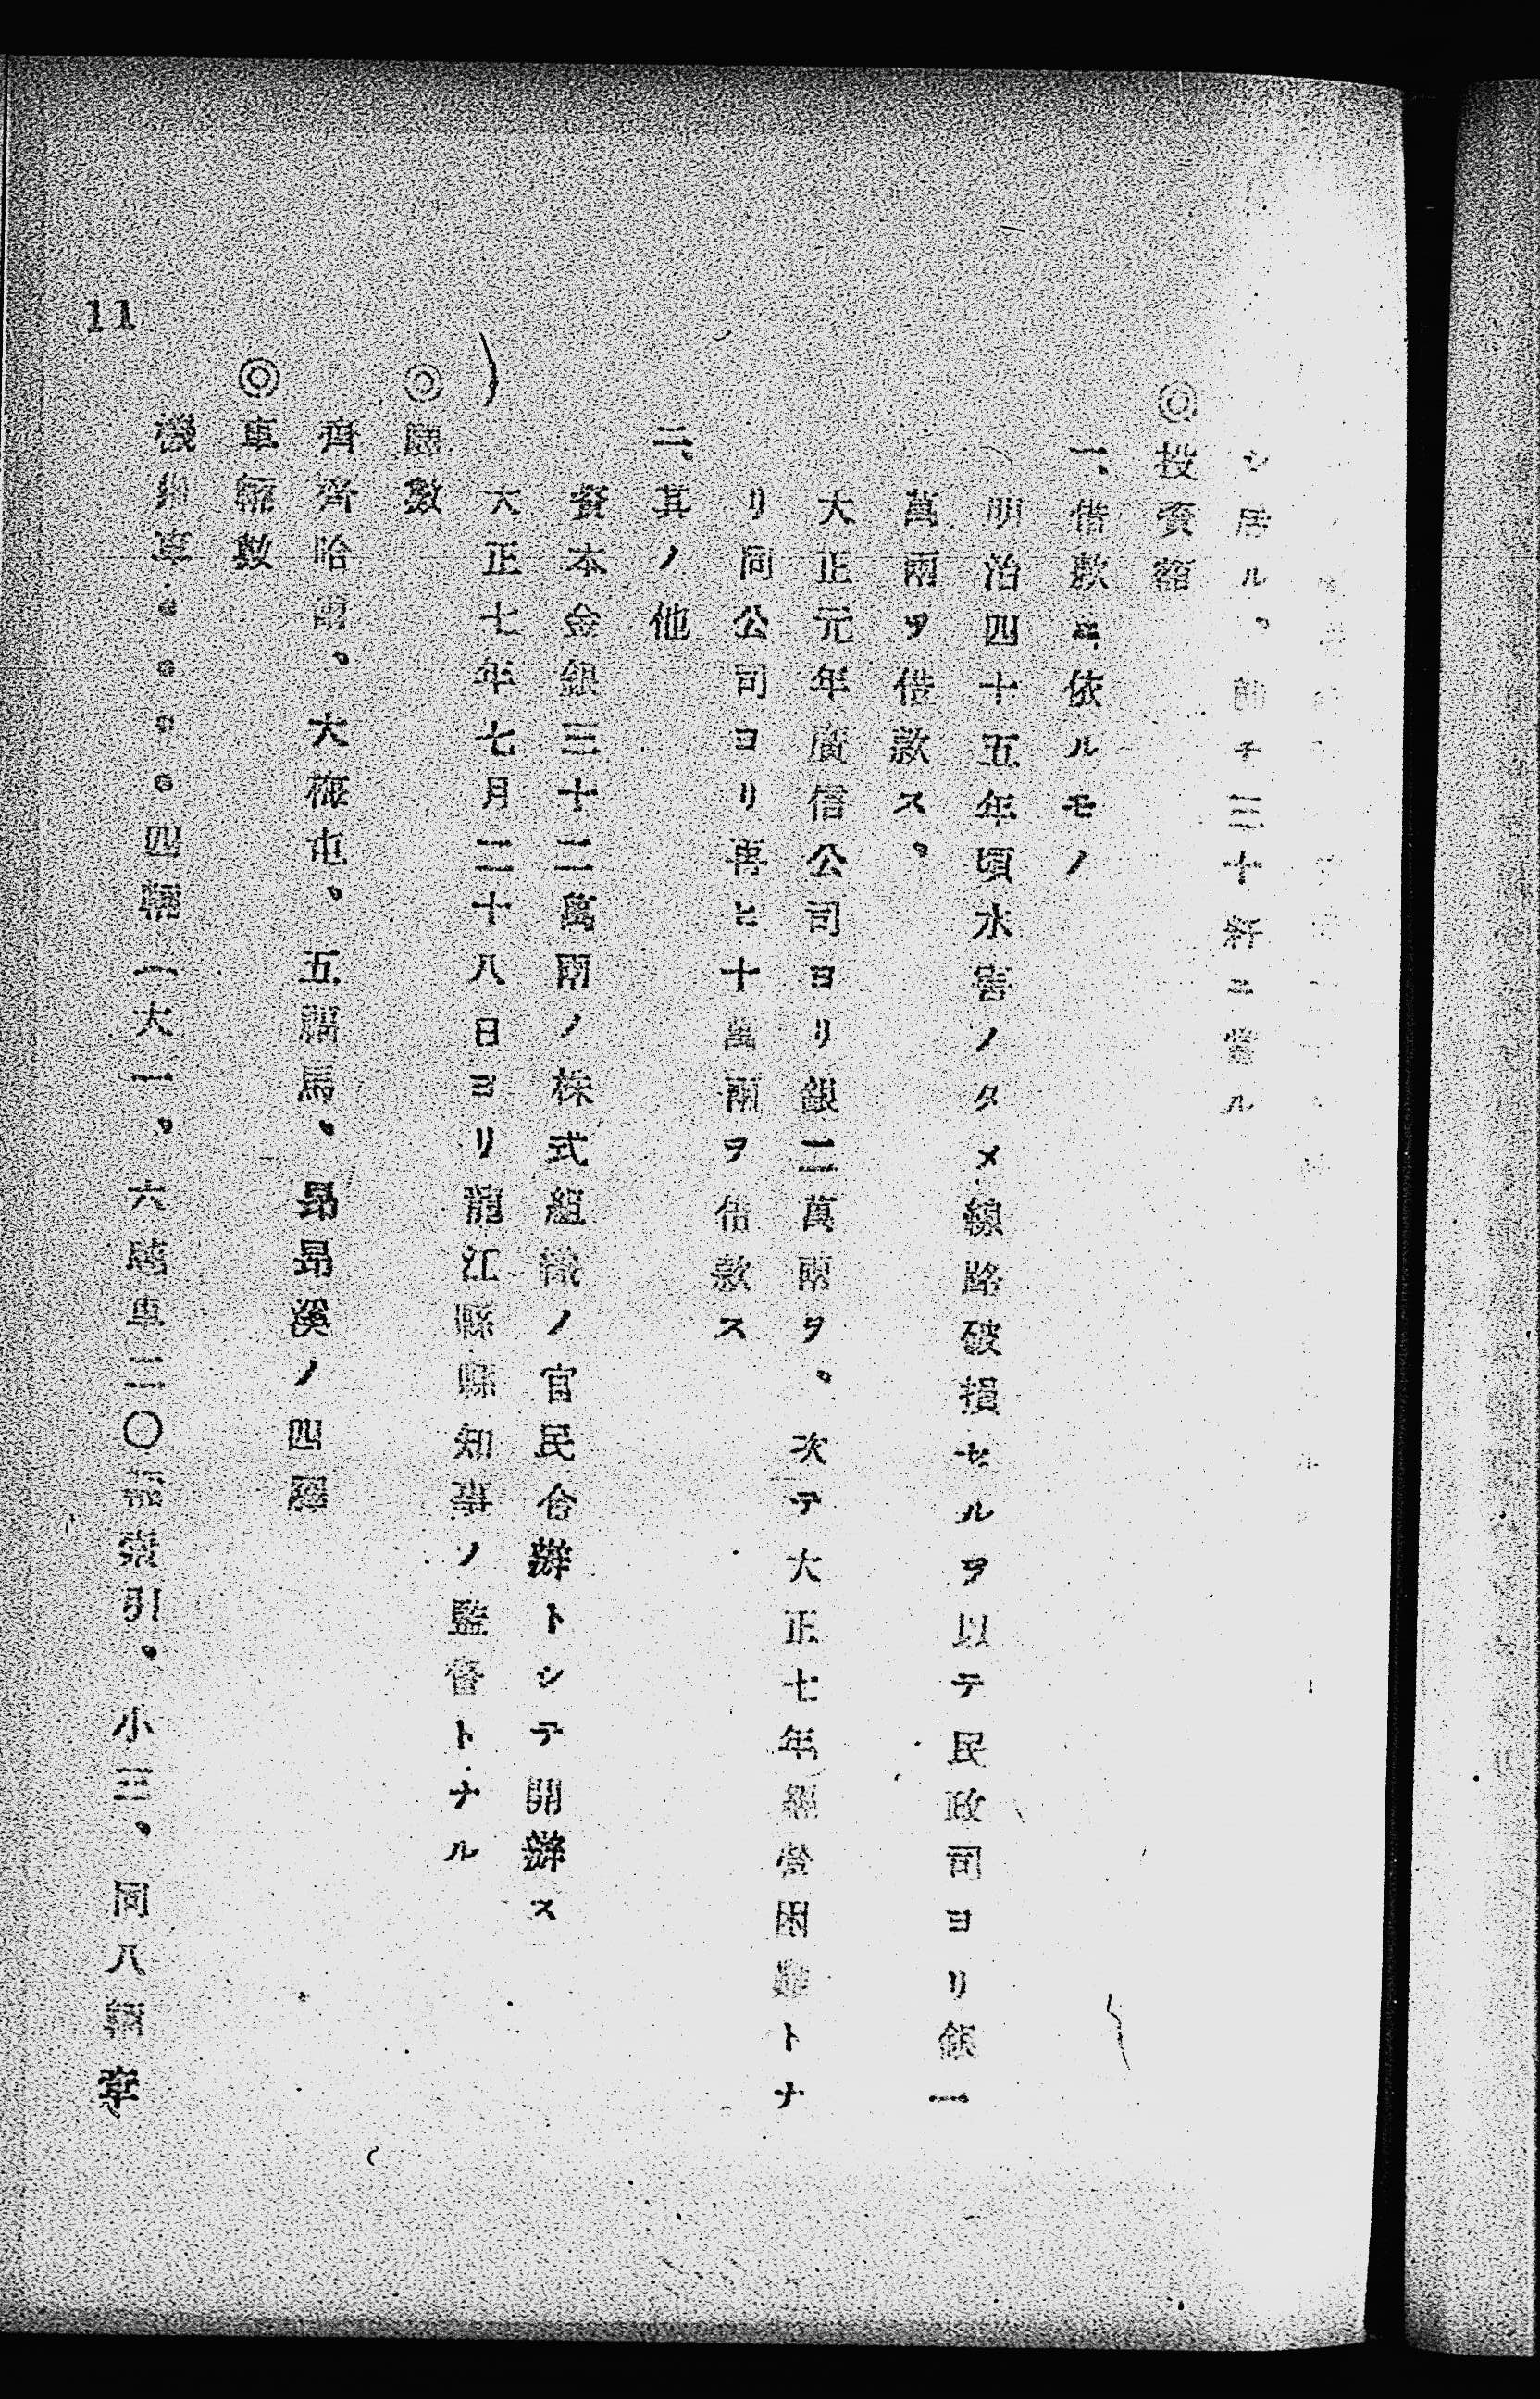 シ居ル。即チ三十粁ニ當ル
◎投資額
一、借款ニ依ルモノ
明治四十五年頃水害ノタメ線路破損セルヲ以テ民政司ヨリ銀一
萬兩ヲ借款ス。
大正元年廣信公司ヨリ銀二萬兩ヲ。次テ大正七年經營困難トナ
リ同公司ヨリ再ヒ十萬兩ヲ借款ス
二、其ノ他
資本金銀三十二萬兩ノ株式組織ノ官民合辦トシテ開辦ス
大正七年七月二十八日ヨリ龍江縣縣知事ノ監督トナル
◎驛數
齊齊哈爾、大 屯。五 馬。昂昂溪ノ四驛
◎車輛數
機關車。。。。四輛(大一。六 車二〇 牽引。小三。同八輛牽
11